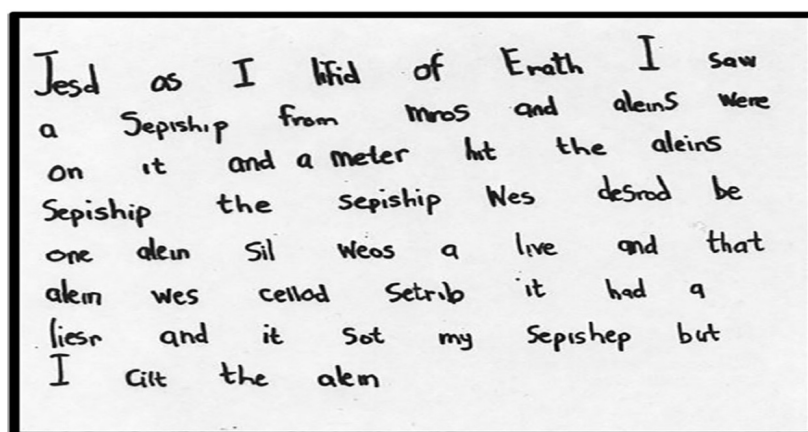 Jesd as I lifid of Erath I saw
a Sepiship from mros and aleins were
on it and a meter hit the aleins
Sepiship the sepiship Wes desrod be
one alein Sil weos a live and that
alein wes cellod Setrib it had a
liesr and it Sot my Sepishep but
I Cilt the alein